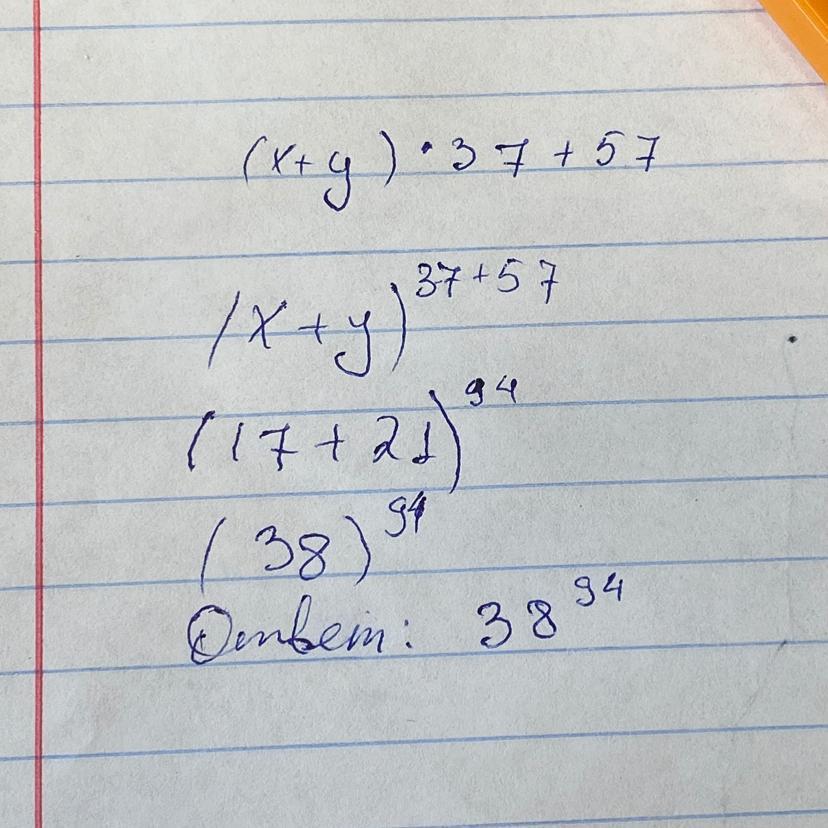 (x+y)·37+57
(x+y)^37+57
(17+21)^94
(38)^94
Ответ: 38^94